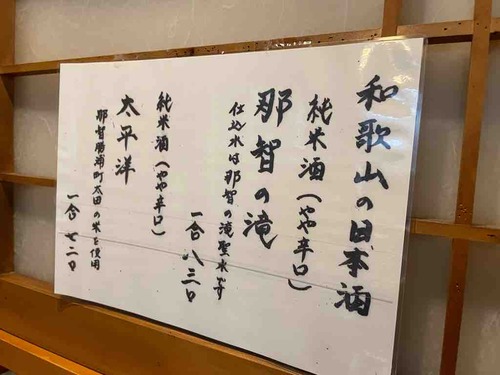 和歌山の日本酒
純米酒(やや辛口)
那智の滝
仕込水は那智の滝聖水です
一合 八三〇
純米酒(やや辛口)
太平洋
那智勝浦町太田の米を使用
一合 七二〇